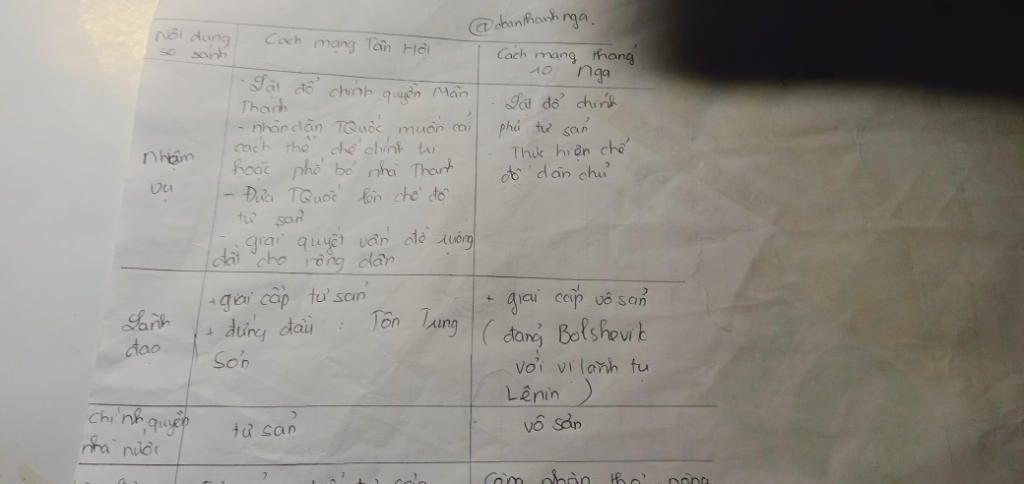 @doanthanhnga.
Nội dung so sánh
Cách mạng Tân Hợi
Cách mạng tháng
10 Nga
Nhiệm
vụ
- Lật đổ chính quyền Mãn
Thanh
- nhân dân TQuốc muốn cải
cách thể chế chính trị
hoặc phế bỏ nhà Thanh
- Đưa TQuốc lên chế độ
tư sản
- giải quyết vấn đề ruộng
đất cho nông dân
- Lật đổ chính
phủ tư sản
- Thực hiện chế
độ dân chủ
Lãnh
đạo
+ giai cấp tư sản
+ đứng đầu : Tôn Trung
Sơn
+ giai cấp vô sản
( đảng Bolshevik
với vị lãnh tụ
Lênin )
chính quyền
nhà nước
tư sản
vô sản